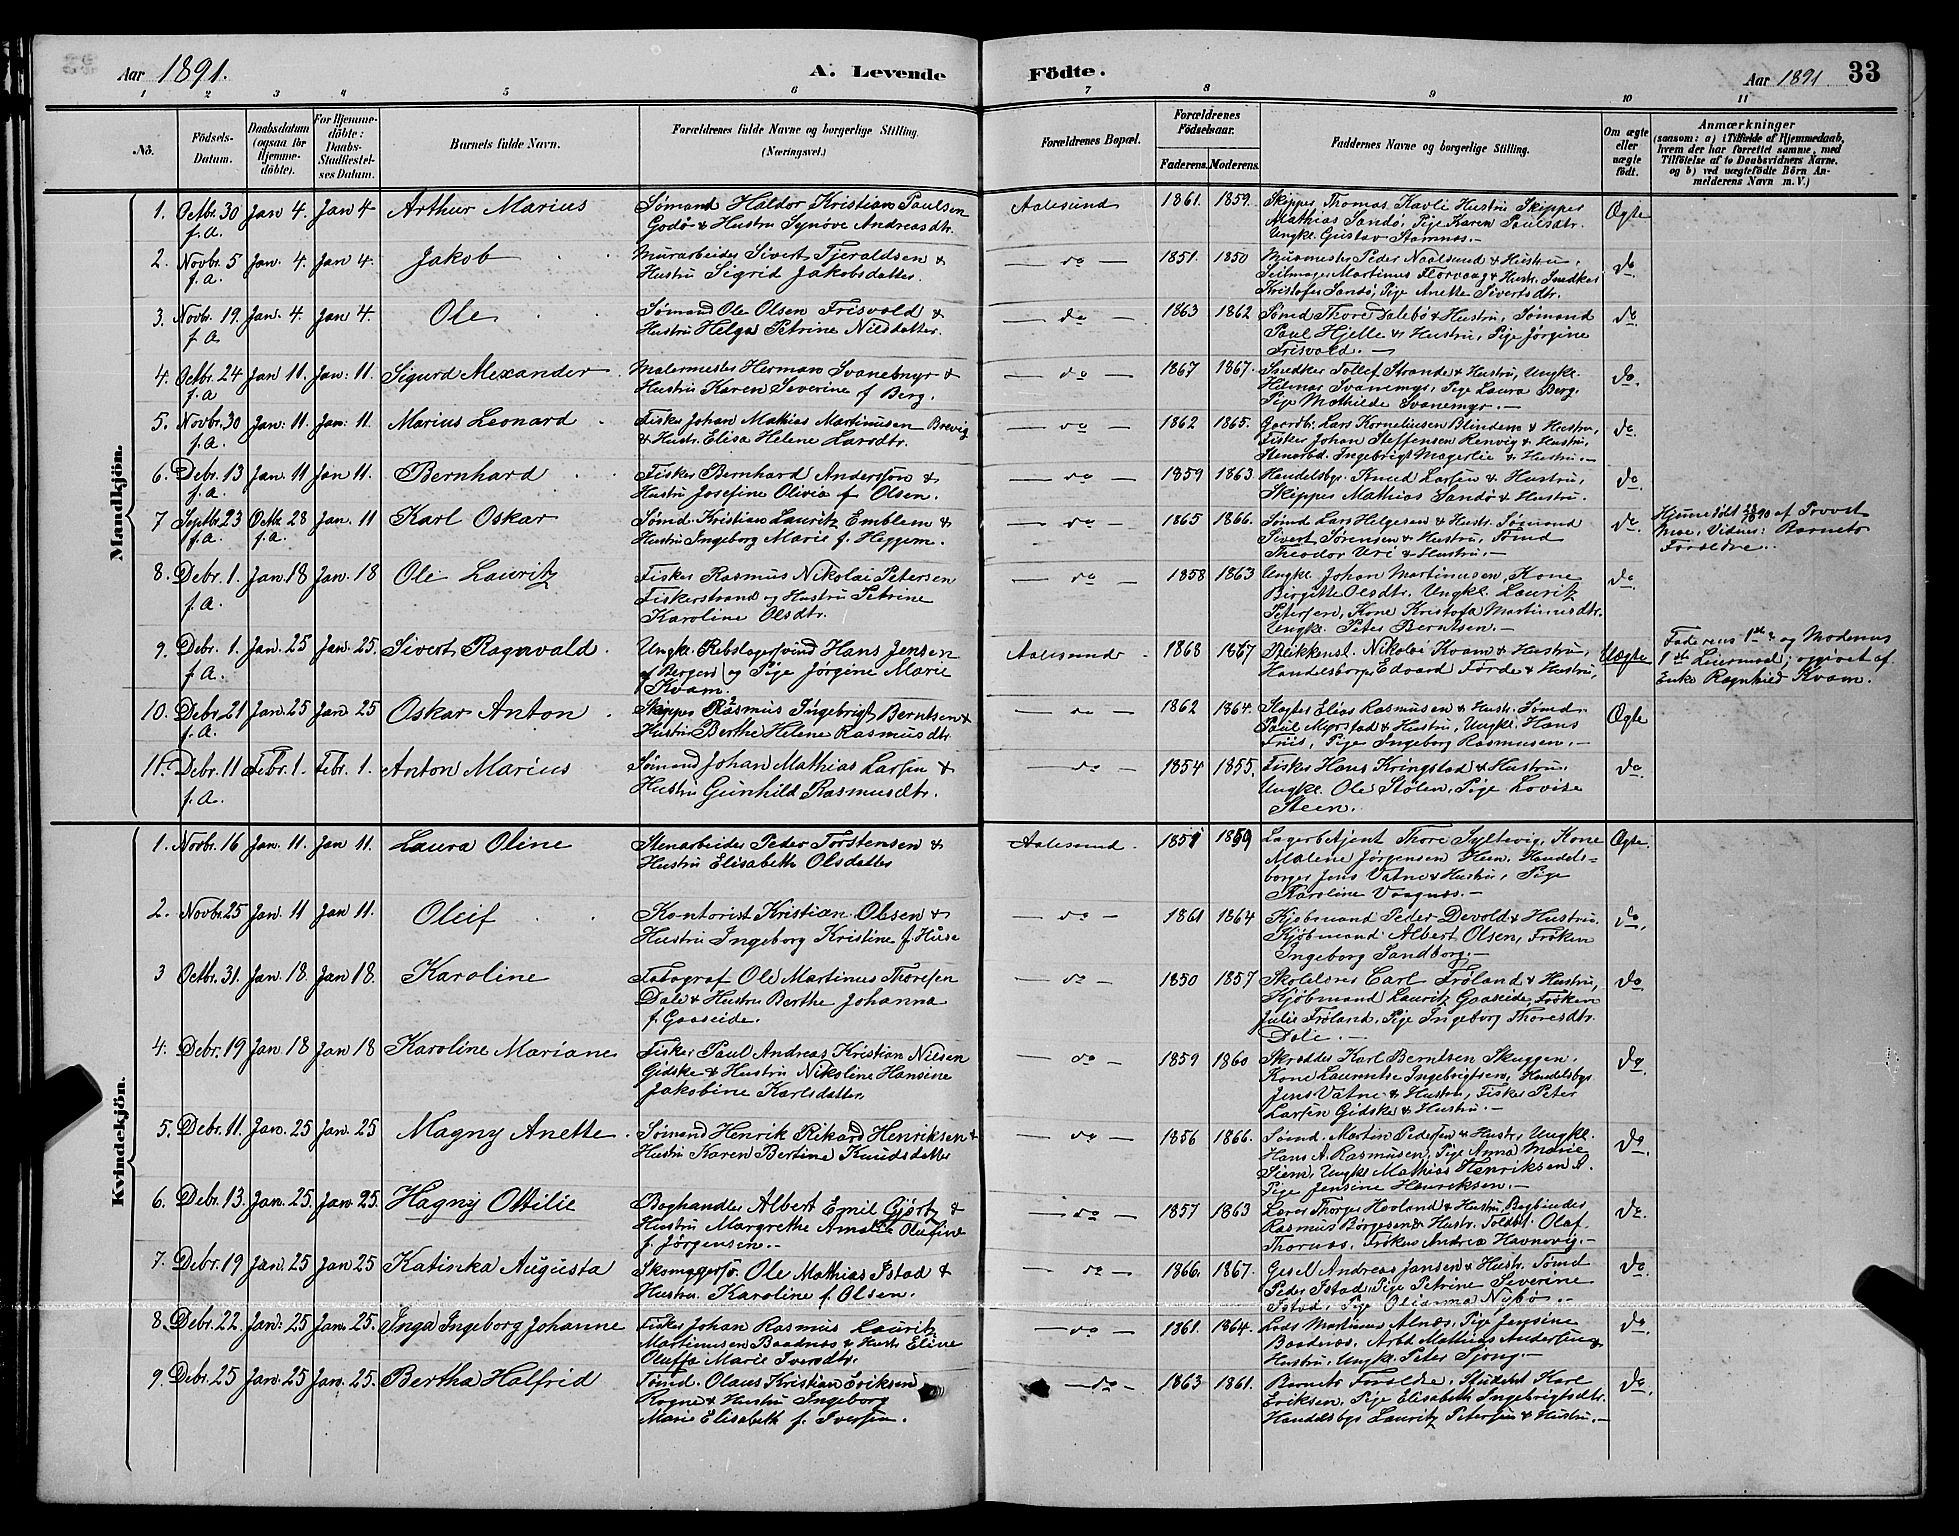 Aar 1891. A. Levende Födte. Aar 1891 33
1 2 3 4 5 6 7 8 9 10 11
No. Födsels-Datum. Daabsdatum (ogsaa for Hjemmedöbte). For Hjemmedöbte: Daabs-Stadfæstelses Datum. Barnets fulde Navn. Forældrenes fulde Navne og borgerlige Stilling. (Næringsvei.) Forældrenes Bopæl. Forældrenes Födselsaar. Faderens. Moderens. Faddernes Navne og borgerlige Stilling. Om ægte eller uægte födt. Anmærkninger (saasom: a) i Tilfælde af Hjemmedaab, hvem der har forrettet samme, med Tilföielse af to Daabsvidners Navne, og b) ved uægtefödte Börn Anmelderens Navn m. V.)
Mandkjön.
1. Octbr. 30 f.A. Jan 4. Jan 4 Arthur Marius Sömand Haldor Kristian Paulsen Godö & Hustru Synöve Andreasdtr. Aalesund 1861. 1859. Skipper Thomas Kavli Hustru Skipper Mathias Sandö, Pige Karen Paulsdtr. Ungkl. Gustav Stamnes. Ægte
2. Novbr. 5 f.A. Jan. 4. Jan 4. Jakob Murarbeider Sivert Fjeraldsen & Hustru Sigrid Jakobsdatter. do 1851. 1850 Murmester Peder Naalsund & Hustru, Seilmager Martinus Florvaag & Hustr. Snedker Kristofer Sandö, Pige Anette Sivertsdtr. do
3. Novbr. 19. f A Jan. 4. Jan 4. Ole Sömand Ole Olsen Frisvold & Hustru Helga Petrine Nilsdatter. do 1863 1862 Sömd Thore Dalebö & Hustru, Sömand Paul Hjelle & Hustru, Pige Jörgine Frisvold. do.
4. Octbr. 24 f.A Jan 11. Jan: 11. Sigurd Alexander Malermester Herman Svanemyr & Hustru Karen Severine f Berg. do 1867 1867. Snedker Tollef Strande & Hustru, Ungkl. Hilmar Svanemyr, Pige Laura Berg. Pige Mathilde Svanemyr. do.
5. Novbr. 30 f.A. Jan: 11. Jan: 11. Marius Leonard Fisker Johan Mathias Martinusen Brevig & Hustr. Elisa Helene Larsdtr. do 1862 1865. Gaardbr. Lars Korneliusen Blindem & Hustru, Fisker Johan Steffensen Renvig & Hustru, Stenarbd. Ingebrigt Magerlie & Hustru. do.
6. Debr. 13 f.A. Jan 11 Jan 11. Bernhard Fisker Bernhard Anderson & Hustru Josefine Olivia f Olsen. do 1859 1863 Handelsbgr. Knud Larsen & Hustru, Skipper Mathias Sandö & Hustru. do.
7 Septbr. 23 f.A. Octb. 28 f.A. Jan. 11 Karl Oskar Sömd. Kristian Lauritz Emblem & Hustru Ingeborg Marie f. Heggem. do 1865 1866. Sömd Lars Helgesen & Hustr. Sömand Sivert Sörensen & Hustru, Sömd Theodor Uri & Hustru. do. Hjemmedöbt 28/10 1890 af Provst Moe, Vidner: Barnets Forældre.
8. Debr. 1. f.A. Jan. 18 Jan. 18 Ole Lauritz Fisker Rasmus Nikolai Petersen Fiskerstrand og Hustru Petrine Karoline Olsdtr. do 1858 1863 Ungkl. Johan Martinusen, Kone Birgitte Olsdtr. Ungkl. Lauritz Petersen, Kone Kristofa Martinusdtr. Ungkl. Peter Berntsen. do.
9. Debr. 1. f.A. Jan. 25 Jan. 25. Sivert Ragnvald Ungk. Rebslagersvend Hans Jensen af Bergen og Pige Jörgine Marie Kvam. Aalesund 1868 1867 Blikkensl. Nikolai Kvam & Hustru, Handelsborger Edvard Förde & Hustru, Uægte Faderens 1ste og Moderens 1ste Leiermaal; opgivet af Enke Ragnhild Kvam.
10. Debr. 21 f.A. Jan. 25 Jan 25 Oskar Anton Skipper Rasmus Ingebrigt Berntsen & Hustru Berthe Helene Rasmusdtr. do 1862 1864. Slagter Elias Rasmusen & Hustr. Sömd. Paul Myrstad & Hustru, Ungkl. Hans Friis, Pige Ingeborg Rasmusen. Ægte
11. Debr. 11 f.A. Febr. 1. Febr. 1. Anton Marius Sömand Johan Mathias Larsen & Hustru Gunhild Rasmusdtr. do 1854 1855. Fisker Hans Kringstad & Hustru. Ungkl. Ole Stölen, Pige Lovise Steen. do.
Kvindekjön.
1. Novbr. 16 Jan. 11. Jan 11. Laura Oline Stenarbeider Peder Torstensen & Hustru Elisabeth Olsdatter Aalesund. 1851 1859 Lagerbetjent Thore Syltevig, Kone Malene Jörgensen Heen, Handelsborger Jens Vatne & Hustru, Pige Karoline Vaagnes. Ægte.
2. Novbr. 25 Jan. 11 Jan 11. Oleif Kontorist Kristian Olsen & Hustru Ingeborg Kristine f. Huse do 1861 1864 Kjöbmand Peder Devold & Hustru, Kjöbmand Albert Olsen, Fröken Ingeborg Sandborg. do.
3 Octbr. 31. Jan. 18 Jan 18. Karoline Fotograf Ole Martinus Thoresen Dale & Hustru Berthe Johanna f. Gaaseide. do 1850 1857 Skolelærer Carl Fröland & Hustru, Kjöbmand Lauritz Gaaseide, Fröken Julie Fröland, Pige Ingeborg Thoresdtr. Dale. do.
4. Debr. 19 Jan 18 Jan 18 Karoline Mariane Fisker Paul Andreas Kristian Nilsen Gidske & Hustru Nikoline Hansine Jakobine Karlsdatter. do 1859 1860 Skrædder Karl Berntsen Skuggen, Kone Laurentse Ingebrigtsen, Handelsbgr. Jens Vatne & Hustru, Fisker Peter Larsen Gidske & Hustru. do.
5. Debr. 11. Jan. 25 Jan. 25 Magny Anette Sömand Henrik Rikard Henriksen & Hustru Karen Bertine Knudsdatter do 1856 1866. Sömd. Martin Pedersen & Hustr, Ungkl. Hans A. Rasmusen, Pige Anna Marie Siem, Ungkl. Mathias Henriksen & Pige Jensine Henriksen. do.
6. Debr. 13. Jan. 25. Jan. 25. Hagny Ottilie Boghandler Albert Emil Gjörtz & Hustru Margrethe Amalie Olufine f. Jörgensen. do 1857 1863 Lærer Thorger Hovland & Hustru Bogbinder Rasmus Börgesen & Hustr. Toldbt. Olaf Thornæs, Fröken Andrea Havnevig. do.
7. Debr. 19 Jan. 25 Jan 25 Katinka Augusta Skomagersv. Ole Mathias Istad & Hustru Karoline f Olsen. do 1866. 1867. Gesel Andreas Jansen & Hustr. Sömd Peder Istad, Pige Petrine Severine Istad, Pige Olianna Nybö. do.
8. Debr. 22. Jan: 25 Jan. 25. Inga Ingeborg Johanne Fisker Johan Rasmus Lauritz Martinusen Baadnæs & Hustr. Eline Oluffa Marie Iversdtr. do 1861. 1864. Lods Martinus Alnæs, Pige Jensine Baadnæs, Arbd Mathias Andersen & Hustru, Ungkl. Peter Sjong. do.
9. Debr. 25 Jan. 25 Jan. 25. Bertha Halfrid Sömd. Olaus Kristian Eriksen Rogne & Hustru Ingeborg Marie Elisabeth f. Iversen. do 1863 1861. Barnets Forældre, Student Karl Eriksen, Pige Elisabeth Ingebrigtsdtr. Handelsbgr Lauritz Petersen & Hustru. do.